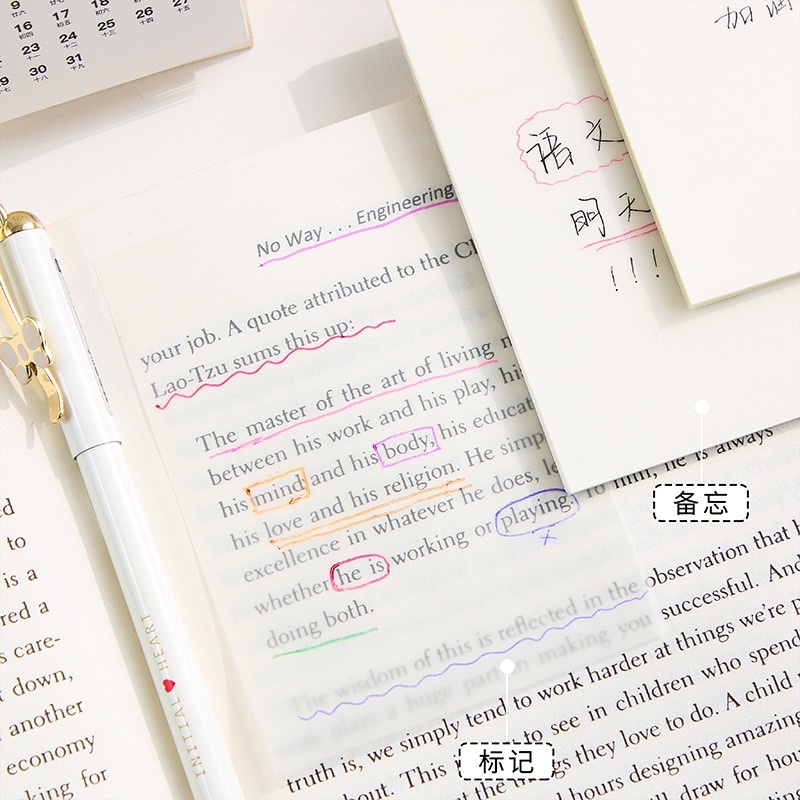 9 16 17 18
廿六 初五
16 24 25 26 27
初四 初五
23 24 25 26
十一 十二 十三 十四
30 31
十八 十九
加油
语文
明天
!!!
No Way . . . Engineering
your job. A quote attributed to the
Lao-Tzu sums this up:
The master of the art of living
between his work and his play, his
his mind and his body, his
his love and his religion. He
excellence in whatever he does,
whether he is working or playing. To him, he is always
doing both.
The wisdom of this is reflected in the observation that
work plays a huge part in making you successful. And
truth is, we simply tend to work harder at things we're
about. This to see in children who spend
at the things they love to do. A child
hours designing amazing
draw for
to
is a
red a
s care-
down,
another
economy
king for
INITIAL HEART
备忘
标记